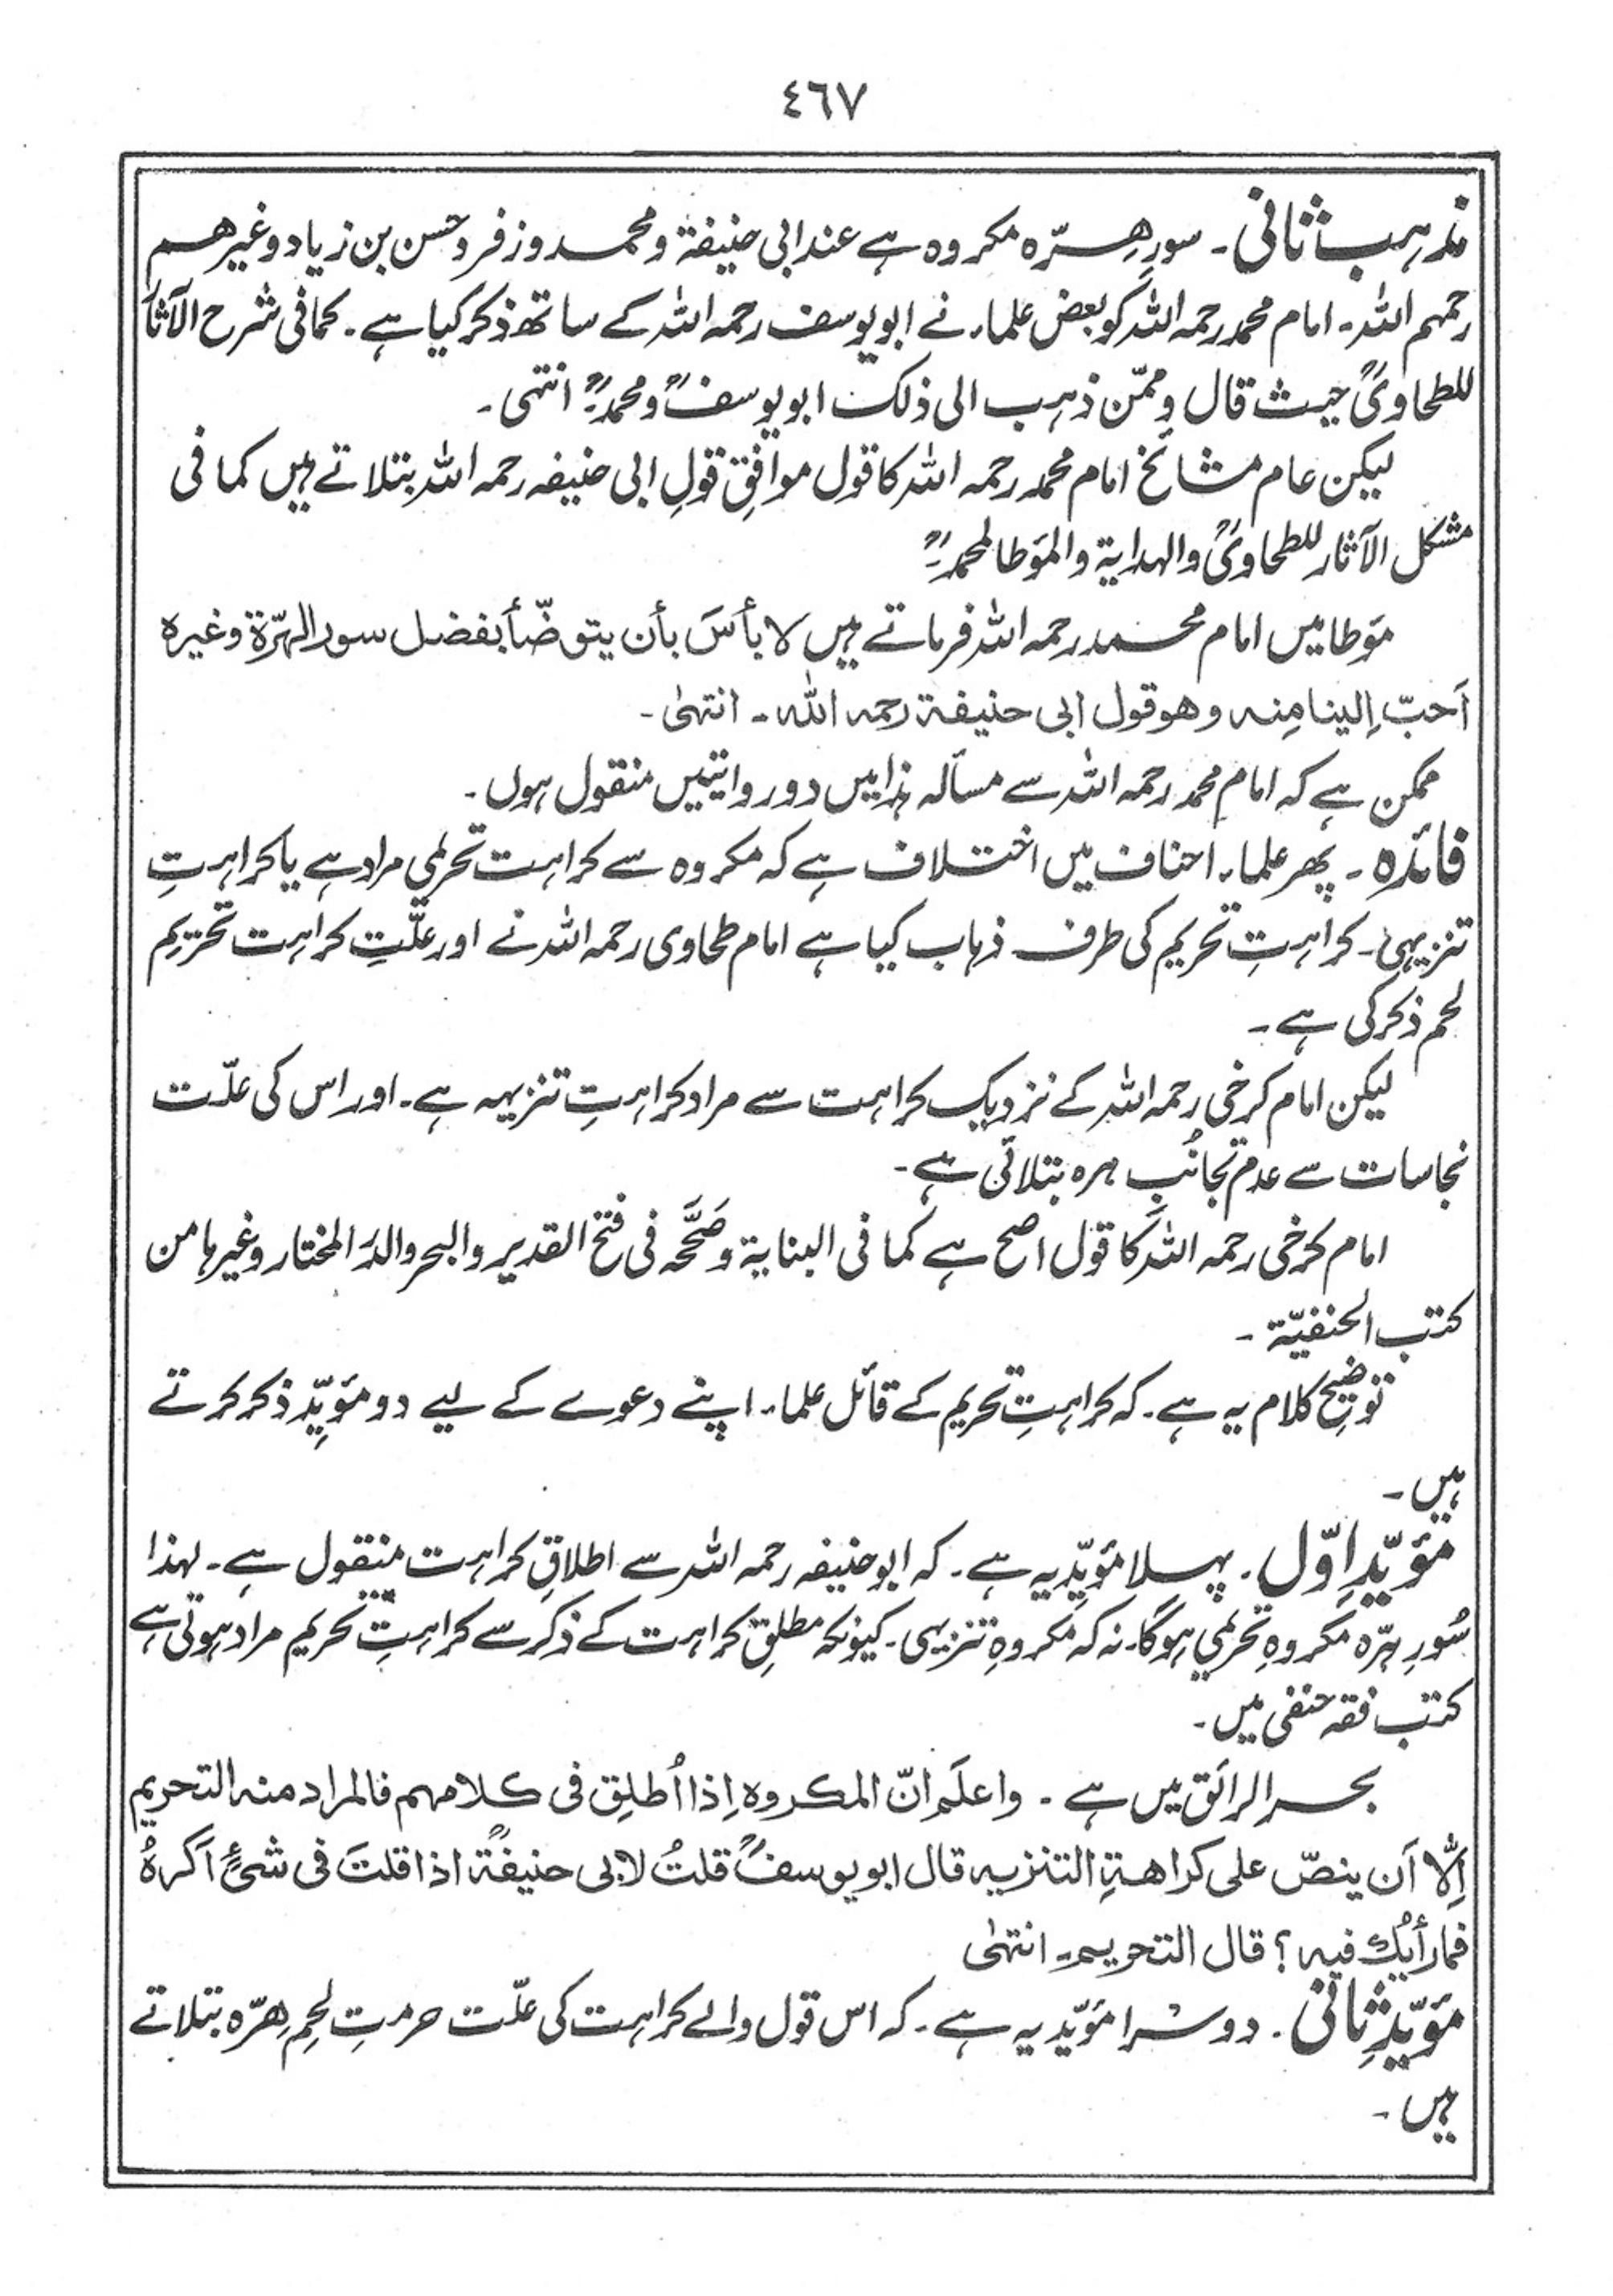 ٤٦٧
مذہب ثانی ۔ سورِ ھِرّہ مکروہ ہے عند ابی حنیفۃ و محمد و زفر و حسن بن زیاد و غیرھم
رحمہم اللہ ۔ امام محمد رحمہ اللہ کو بعض علماء نے ابو یوسف رحمہ اللہ کے ساتھ ذکر کیا ہے ۔ کما فی شرح الآثار
للطحاویؒ حیث قال و ممّن ذہب الی ذلک ابو یوسفؒ و محمدؒ انتہی ۔
لیکن عام مشائخ امام محمد رحمہ اللہ کا قول موافقِ قولِ ابی حنیفہ رحمہ اللہ بتلاتے ہیں کما فی
مشکل الآثار للطحاویؒ والہدایۃ والمؤطا لمحمدؒ
مؤطا میں امام محمد رحمہ اللہ فرماتے ہیں لا بأسَ بأن یتوضّأ بفضل سور الہرّۃ وغیرہ
اَحبّ اِلینا مِنہ وھو قول ابی حنیفۃ رحمہ اللہ ۔ انتہٰی ۔
ممکن ہے کہ امام محمد رحمہ اللہ سے مسألہ ہٰذا میں دو روایتیں منقول ہوں ۔
فائدہ ۔ پھر علماء احناف میں اختلاف ہے کہ مکروہ سے کراہت تحریمی مراد ہے یا کراہتِ
تنزیہی ۔ کراہتِ تحریم کی طرف ذہاب کیا ہے امام طحاوی رحمہ اللہ نے اور علّتِ کراہت تحریمِ
لحم ذکر کی ہے ۔
لیکن امام کرخی رحمہ اللہ کے نزدیک کراہت سے مراد کراہتِ تنزیہہ ہے ۔ اور اس کی علّت
نجاسات سے عدم تجانُبِ ہرہ بتلائی ہے ۔
امام کرخی رحمہ اللہ کا قول اصح ہے کما فی البنایۃ وصَحَّحہ فی فتح القدیر والبحر والدر المختار وغیرہا من
کتب الحنفیّۃ ۔
توضیحِ کلام یہ ہے ۔ کہ کراہتِ تحریم کے قائل علماء اپنے دعوے کے لیے دو مؤیِّد ذکر کرتے
ہیں ۔
مؤیّدِ اوّل ۔ پہلا مؤیّد یہ ہے ۔ کہ ابو حنیفہ رحمہ اللہ سے اطلاقِ کراہت منقول ہے ۔ لہذا
سُورِ ہرّہ مکروہِ تحریمی ہوگا ۔ نہ کہ مکروہِ تنزیہی ۔ کیونکہ مطلقِ کراہت کے ذکر سے کراہتِ تحریم مراد ہوتی ہے
کتب فقہ حنفی میں ۔
بحر الرائق میں ہے ۔ واعلَم انّ المکروہ اِذا اُطلِق فی کلامہم فالمراد منہ التحریم
اِلّا اَن ینصّ علی کراھۃِ التنزیہ قال ابو یوسفؒ قلتُ لابی حنیفۃؒ اذا قلتَ فی شیءٍ اَکرہُ
فما رأیُک فیہ ؟ قال التحریم ۔ انتہٰی
مؤیّدِ ثانی ۔ دوسرا مؤیّد یہ ہے ۔ کہ اس قول والے کراہت کی علّت حرمتِ لحمِ ھِرّہ بتلاتے
ہیں ۔